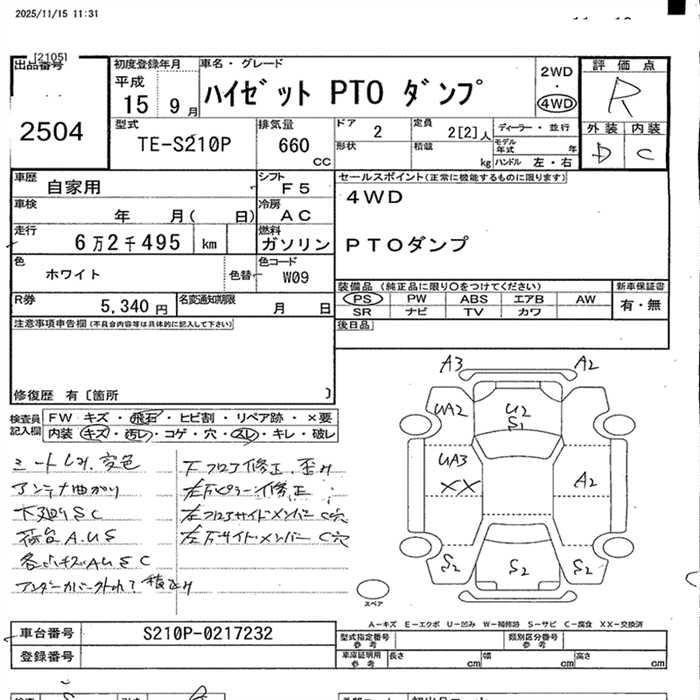 2025/11/15 11:31
[2105]
出品番号
2504
初度登録年月
平成
15 9 月
車名・グレード
ハイゼット PTO ダンプ
2WD
・
4WD
評価点
R
外装 内装
D C
型式
TE-S210P
排気量
660
CC
ドア
2
定員
2[2]人
形状
積載
kg
ディーラー・並行
モデル年式 年
ハンドル 左・右
車歴
自家用
シフト
F5
車検
年 月( 日)
冷房
AC
走行
6万2千495 km
燃料
ガソリン
色
ホワイト
色替
色コード
W09
R券
5,340 円
名変通知期限
月 日
セールスポイント(正常に機能するものに限ります)
4WD
PTOダンプ
装備品 (純正品に限り○をつけてください)
新車保証書
PS PW ABS エアB AW
SR ナビ TV カワ
有・無
後日品
注意事項申告欄 (不具合内容等は具体的に記入して下さい)
修復歴 有〔箇所 〕
検査員記入欄
FW キズ・飛石・ヒビ割・リペア跡・×要
内装 キズ・汚レ・コゲ・穴・スレ・キレ・破レ
シートレス、変色
アンテナ曲がり
下廻りSC
荷台A.U.S
各所キズAUSC
下フロア修正、歪み
左Fピラー修正
左フロアサイドメンバーC穴
左Fサイドメンバー C穴
A3
A2
UA2
U2
S1
UA3
XX
A2
S2
S2
S2
スペア
A-キズ E-エクボ U-凹み W-補修跡 S-サビ C-腐食 XX-交換済
車台番号
S210P-0217232
登録番号
型式指定番号
参考
類別区分番号
参考
車庫証明用
参考
長さ cm 幅 cm 高さ cm